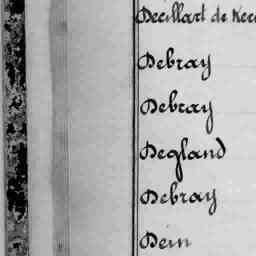 Decillart de Ker
Debray
Debray
Degland
Debray
Dein